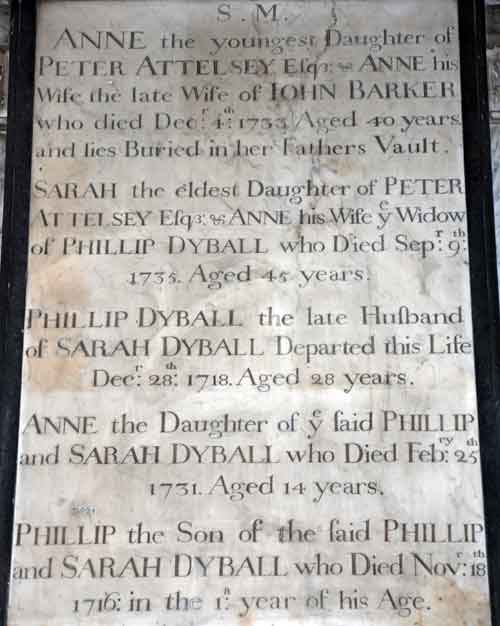 S.M.
ANNE the youngest Daughter of
PETER ATTELSEY Eſqr: & ANNE his
Wife the late Wife of IOHN BARKER
who died Decr: 4th: 1733 Aged 40 years
and lies Buried in her Fathers Vault.
SARAH the eldest Daughter of PETER
ATTELSEY Eſqr: & ANNE his Wife ye Widow
of PHILLIP DYBALL who Died Sepr: 9th:
1735. Aged 45 years.
PHILLIP DYBALL the late Huſband
of SARAH DYBALL Departed this Life
Decr: 28th: 1718. Aged 28 years.
ANNE the Daughter of ye ſaid PHILLIP
and SARAH DYBALL who Died Febry: 25th
1731. Aged 14 years.
PHILLIP the Son of the ſaid PHILLIP
and SARAH DYBALL who Died Novr: 18th
1716: in the 1st: year of his Age.